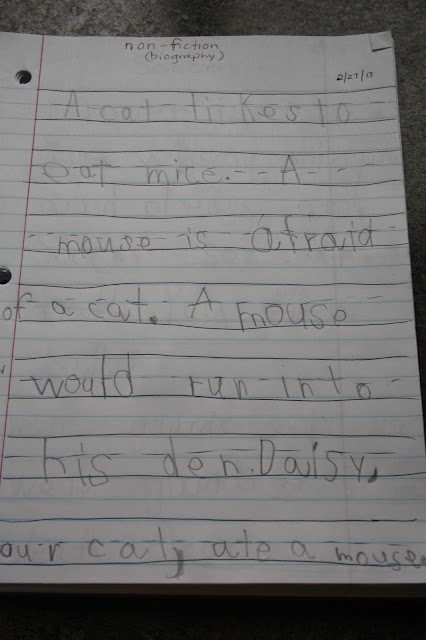 non-fiction
(biography)
2/27/13
A cat likes to
eat mice. A
mouse is afraid
of a cat. A mouse
would run into
his den. Daisy,
our cat, ate a mouse.